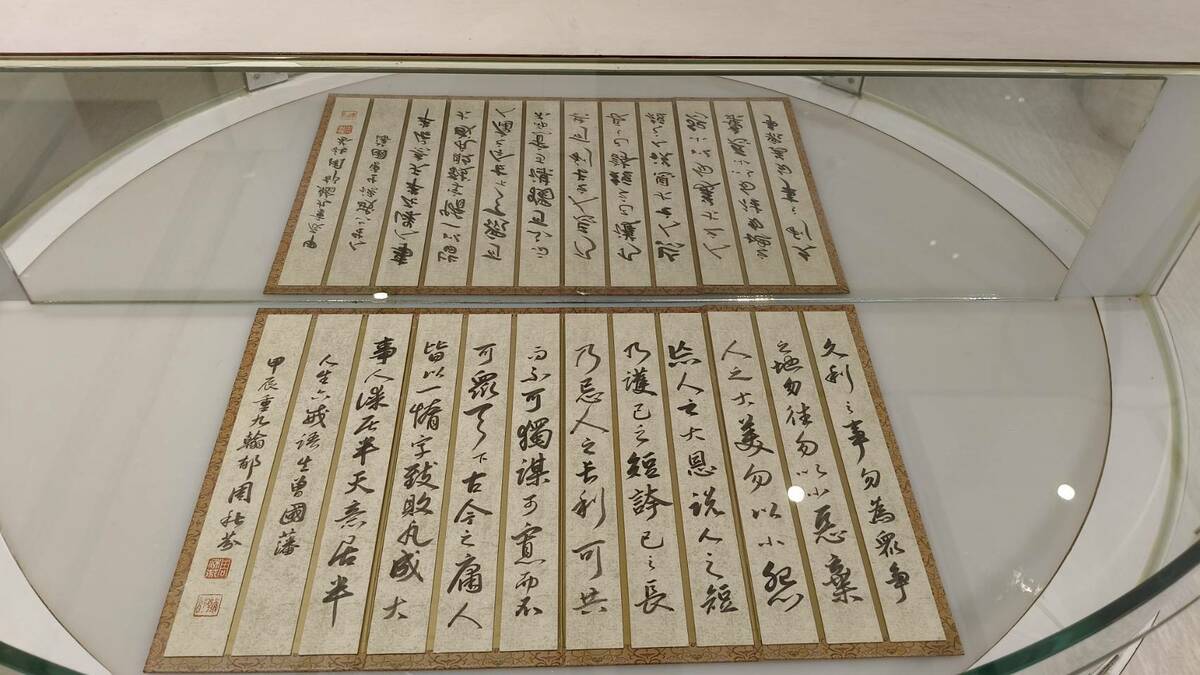 久利之事勿為眾爭
之地勿往勿以小惡棄
人之大美勿以小怨
忘人之大恩說人之短
乃護己之短誇己之長
乃忌人之长利可共
而不可獨謀可寡而不
可眾天下古今之庸人
皆以一惰字致敗凡成大
事人謀居半天意居半
人生六戒語出曾國藩
甲辰重九翰郁周秋芬